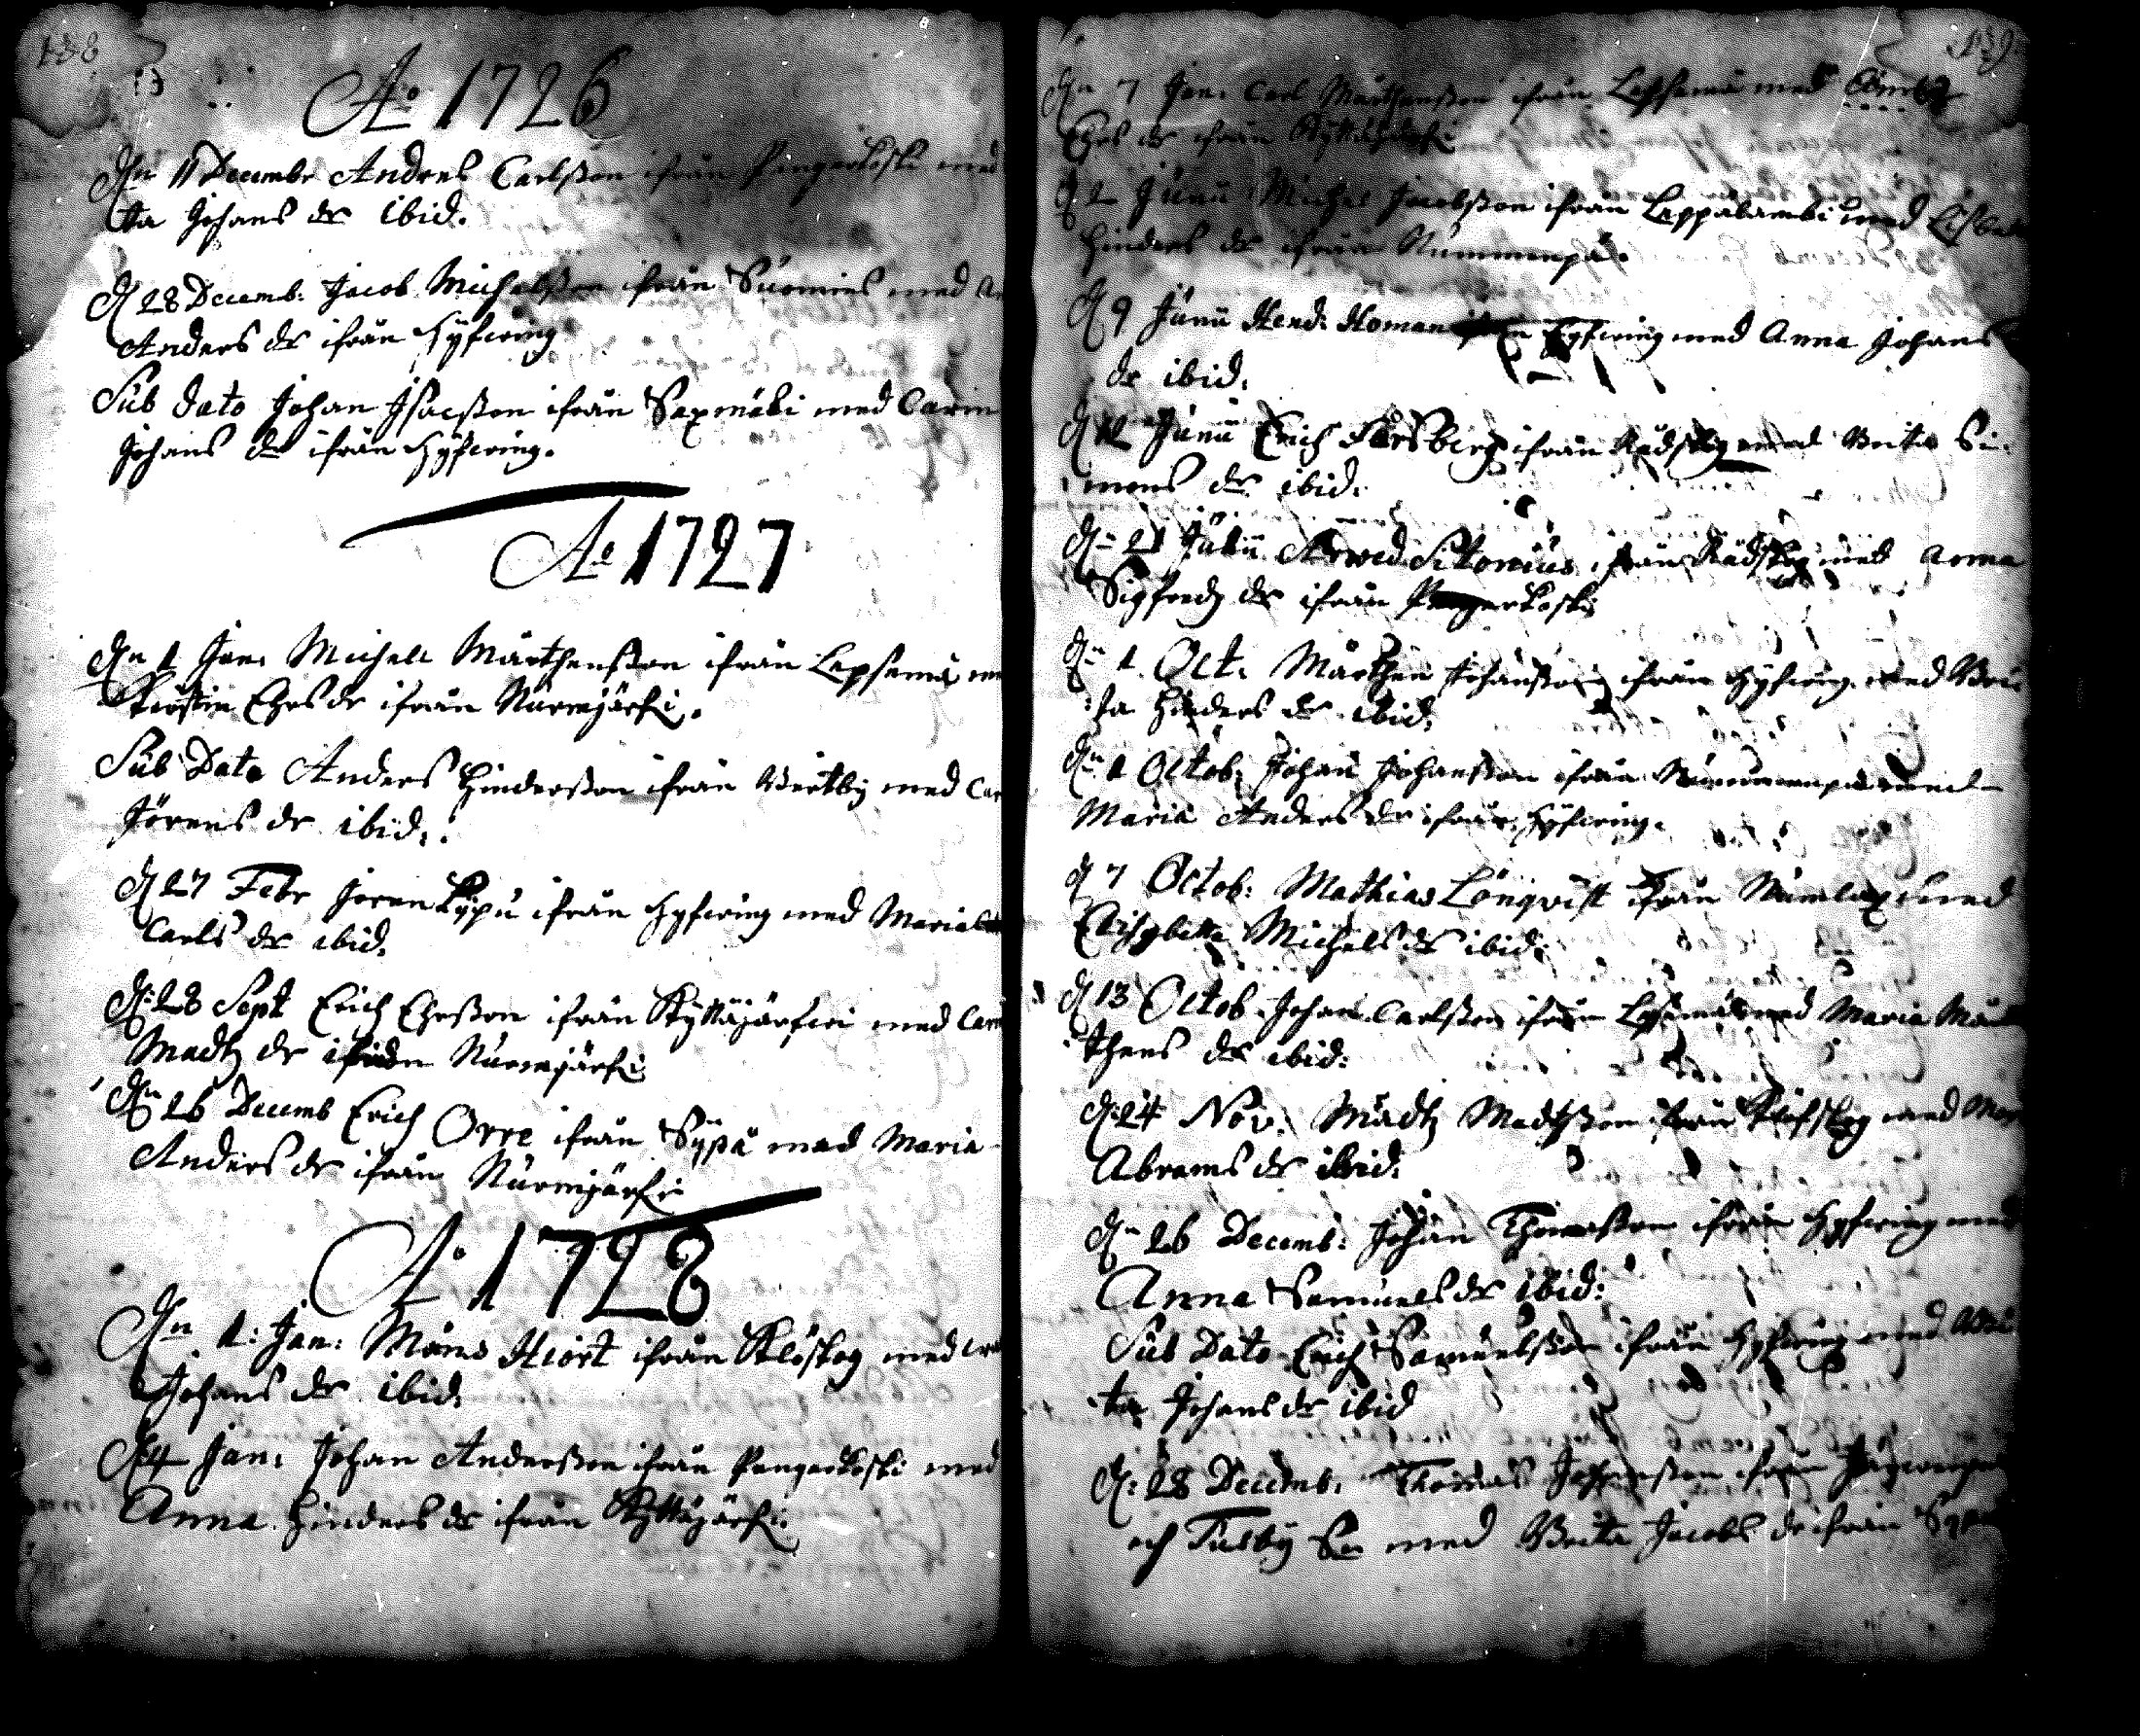 138
Ao 1726
dn 11 Decembr Andres Carlsson ifrån Pengerkoski med
ta Johans dr ibid.
d 28 Decemb: Jacob Michelsson ifrån Suomies med An
Anders dr ifrån Hyfwing
Sub dato Johan Isacsson ifrån Saxmäki med Carin
Johans dr ifrån Hyfwing.
Ao 1727
dn 1 Jan: Michell Mårthensson ifrån Lepsemä me
Kirstin Ehrs dr ifrån Nurmjärfi.
Sub Dato Anders Hindersson ifrån Pertby med Car
Jörens dr ibid.
d 27 Febr Joren Kypu ifrån Hyfwing med Maria
Carls dr ibid.
d: 28 Sept Erich Ehrsson ifrån Kyttäjärfwi med Car
Madtz dr ifrån Nurmjärfi
dn 26 Decemb Erich Orre ifrån Sypä med Maria
Anders dr ifrån Nurmjärfi
Ao 1728
dn 1: Jan: Måns Hiort ifrån Klöskog med
Johans dr ibid.
d 4 Jan: Johan Andersson ifrån Pengerkoski med
Anna Hinders dr ifrån Kyttäjärfi.
139
dn 7 Jan: Carl Mårthensson ifrån Lepsemä med
Ehrs dr ifrån Kyttäjärfi
d 2 Junii Michel Jacobsson ifrån Leppälambi med Lisbet
Hinders dr ifrån Nummenpä.
d 9 Junii Hend: Homan Hyfwing med Anna Johans
dr ibid.
d 12 Junii Erich Forsberg ifrån Rödskog med Brita Si-
mons dr ibid:
dn 21 Julii Arwed Sitonius ifrån Rödskog med Anna
Sigfredz dr ifrån Pengerkoski
dn 1 Oct: Mårthen Johansson ifrån Hyfwing med Bri
ta Hinders dr ibid.
dn 1 Octob: Johan Johansson ifrån Nummenpä med
Maria Anders dr ifrån Hyfwing.
d 7 Octob: Mathias Lönqvist ifrån Numlax med
Elisabetta Michels dr ibid:
d 13 Octob Johan Carlsson ifrån Lepsemä med Maria Mår
thens dr ibid:
d: 24 Nov: Madtz Madtzson ifrån Klöfskog med Mar
Abrams dr ibid:
dn 26 Decemb: Johan Thomasson ifrån Hyfwing med
Anna Samuels dr ibid:
Sub Dato Erich Samuelsson ifrån Hyfwing med Bri
ta Johans dr ibid
d: 28 Decemb: Thomas ifrån
och Tusby Sn med Brita Jacobs dr ifrån Syp